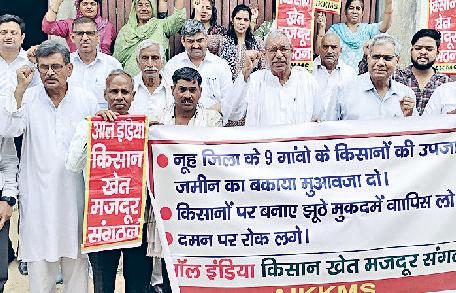 किसान
खेत
मजदूर
IKKMS
ऑल इंडिया
किसान
खेत
मजदूर
संगठन
नूह जिला के 9 गांवो के किसानों की उपजा
जमीन का बकाया मुआवजा दो।
किसानों पर बनाए झूठे मुकदमें वापिस लो
दमन पर रोक लगे।
ऑल इंडिया किसान खेत मजदूर संगठ